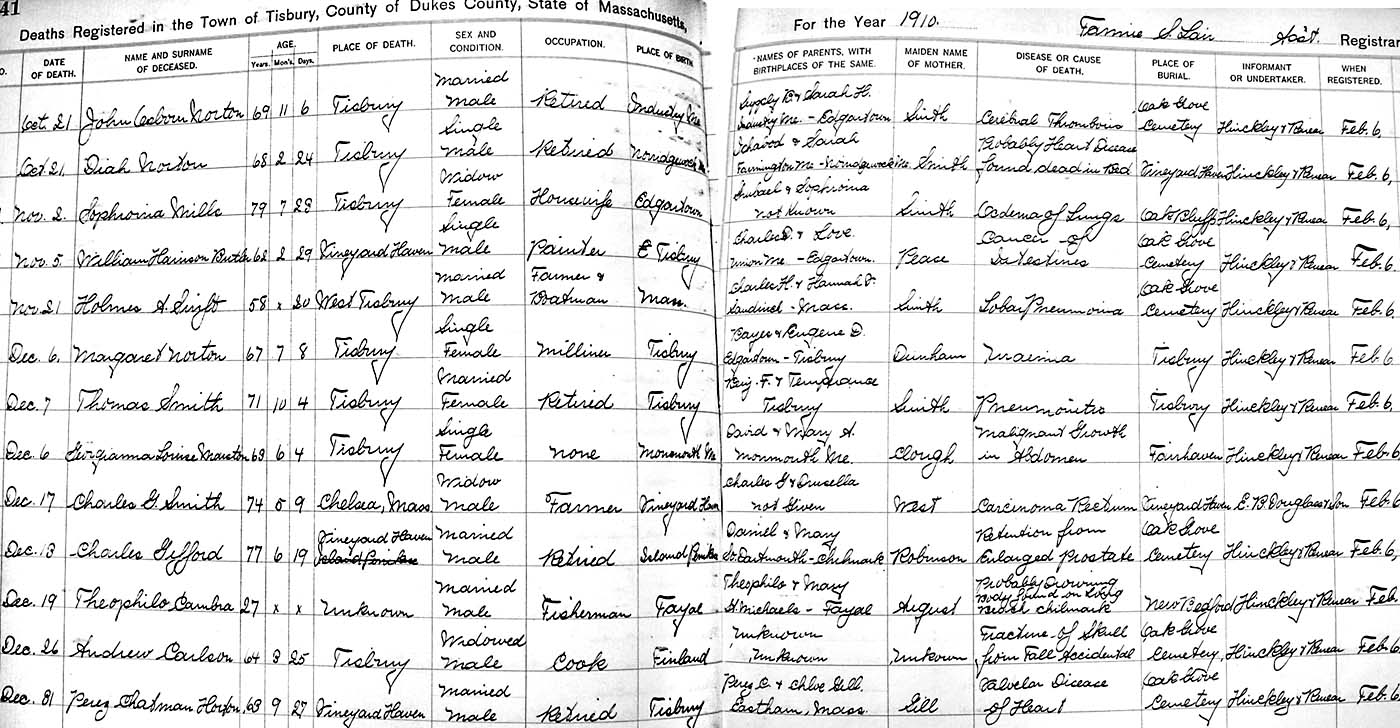 41
Deaths Registered in the Town of Tisbury, County of Dukes County, State of Massachusetts,
For the Year 1910. Fannie S. Lair Ass't. Registrar
DATE OF DEATH. NAME AND SURNAME OF DECEASED. AGE. Years. Mon's. Days. PLACE OF DEATH. SEX AND CONDITION. OCCUPATION. PLACE OF BIRTH NAMES OF PARENTS, WITH BIRTHPLACES OF THE SAME. MAIDEN NAME OF MOTHER. DISEASE OR CAUSE OF DEATH. PLACE OF BURIAL. INFORMANT OR UNDERTAKER. WHEN REGISTERED.
Married B & Sarah H. Oak Grove
Oct. 21 John Osborn Norton 69 11 6 Tisbury Male Retired Industry Me Industry Me. - Edgartown Smith Cerebral Thrombosis Cemetery Hinckley & Renear Feb. 6
Single & Sarah Probably Heart Disease
Oct 21, Diah Norton 68 2 24 Tisbury Male Retired Norridgewock Farmington Me - Norridgewock Me. Smith found dead in Bed Vineyard Haven Hinckley & Renear Feb. 6,
Widow & Sophronia
Nov. 2. Sophronia Mills 79 7 28 Tisbury Female Housewife Edgartown not known Smith Oedema of Lungs Oak Bluffs Hinckley & Renear Feb. 6,
Single Charles D. & Love Cancer of Oak Grove
Nov. 5. William Harrison Butler 62 2 29 Vineyard Haven Male Painter E Tisbury Union Me - Edgartown. Pease Intestines Cemetery Hinckley & Renear Feb. 6
Married Farmer & Charles H. & Hannah Oak Grove
Nov. 21 Holmes A. Swift 58 x 20 West Tisbury Male Boatman Mass. Sandwich - Mass. Smith Lobar Pneumonia Cemetery Hinckley & Renear Feb. 6
Single Bayes & Eugene D.
Dec. 6. Margaret Norton 67 7 8 Tisbury Female Milliner Tisbury Edgartown - Tisbury Dunham Uraemia Tisbury Hinckley & Renear Feb. 6
Married Benj. F. & Temperance
Dec. 7 Thomas Smith 71 10 4 Tisbury Female Retired Tisbury Tisbury Smith Pneumonitis Tisbury Hinckley & Renear Feb. 6
Single David & Mary A. Malignant Growth
Dec. 6 Georgianna Louise Marston 63 6 4 Tisbury Female None Monmouth Me Monmouth Me. Clough in Abdomen Fairhaven Hinckley & Renear Feb. 6
Widow Charles G & Drusella
Dec. 17 Charles G. Smith 74 5 9 Chelsea, Mass Male Farmer Vineyard Haven not Given West Carcinoma Rectum Vineyard Haven E. B. Douglass & Son Feb. 6
Vineyard Haven Married Daniel & Mary Retention from Oak Grove
Dec. 18 Charles Gifford 77 6 19 Male Retired So. Dartmouth - Chilmark Robinson Enlarged Prostate Cemetery Hinckley & Renear Feb. 6,
Married Theophilo & Mary Probably Drowning Body found on Long
Dec. 19 Theophilo Cambra 27 x x Unknown Male Fisherman Fayal St Michaels - Fayal August Beach Chilmark New Bedford Hinckley & Renear Feb.
Widowed Unknown Fracture of Skull Oak Grove
Dec. 26 Andrew Carlson 64 3 25 Tisbury Male Cook Finland Unknown Unknown from Fall Accidental Cemetery, Hinckley & Renear Feb. 6
Married Perez C. & Chloe Gill. Valvular Disease Oak Grove
Dec. 31 Perez Chatman Horton 63 9 27 Vineyard Haven Male Retired Tisbury Eastham, Mass Gill of Heart Cemetery Hinckley & Renear Feb. 6